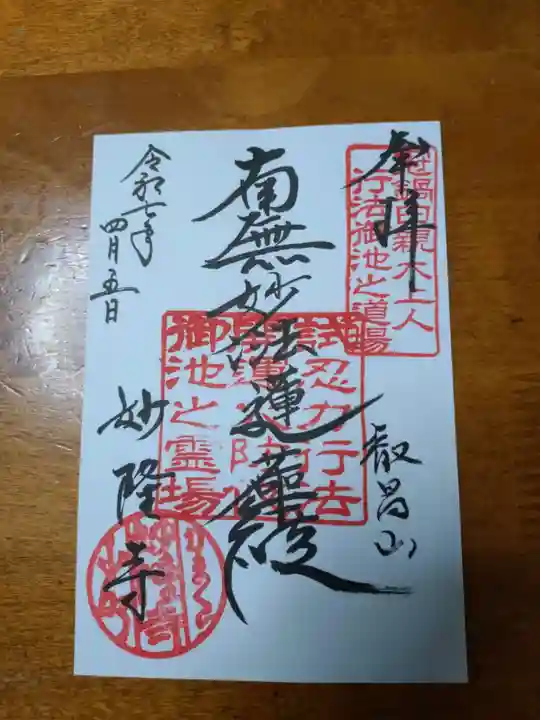 奉拝
冠鍋日親大上人
行法御池之道場
叡昌山
南無妙法蓮華経
忍力行法
御池之霊場
令和七年
四月五日
妙隆寺